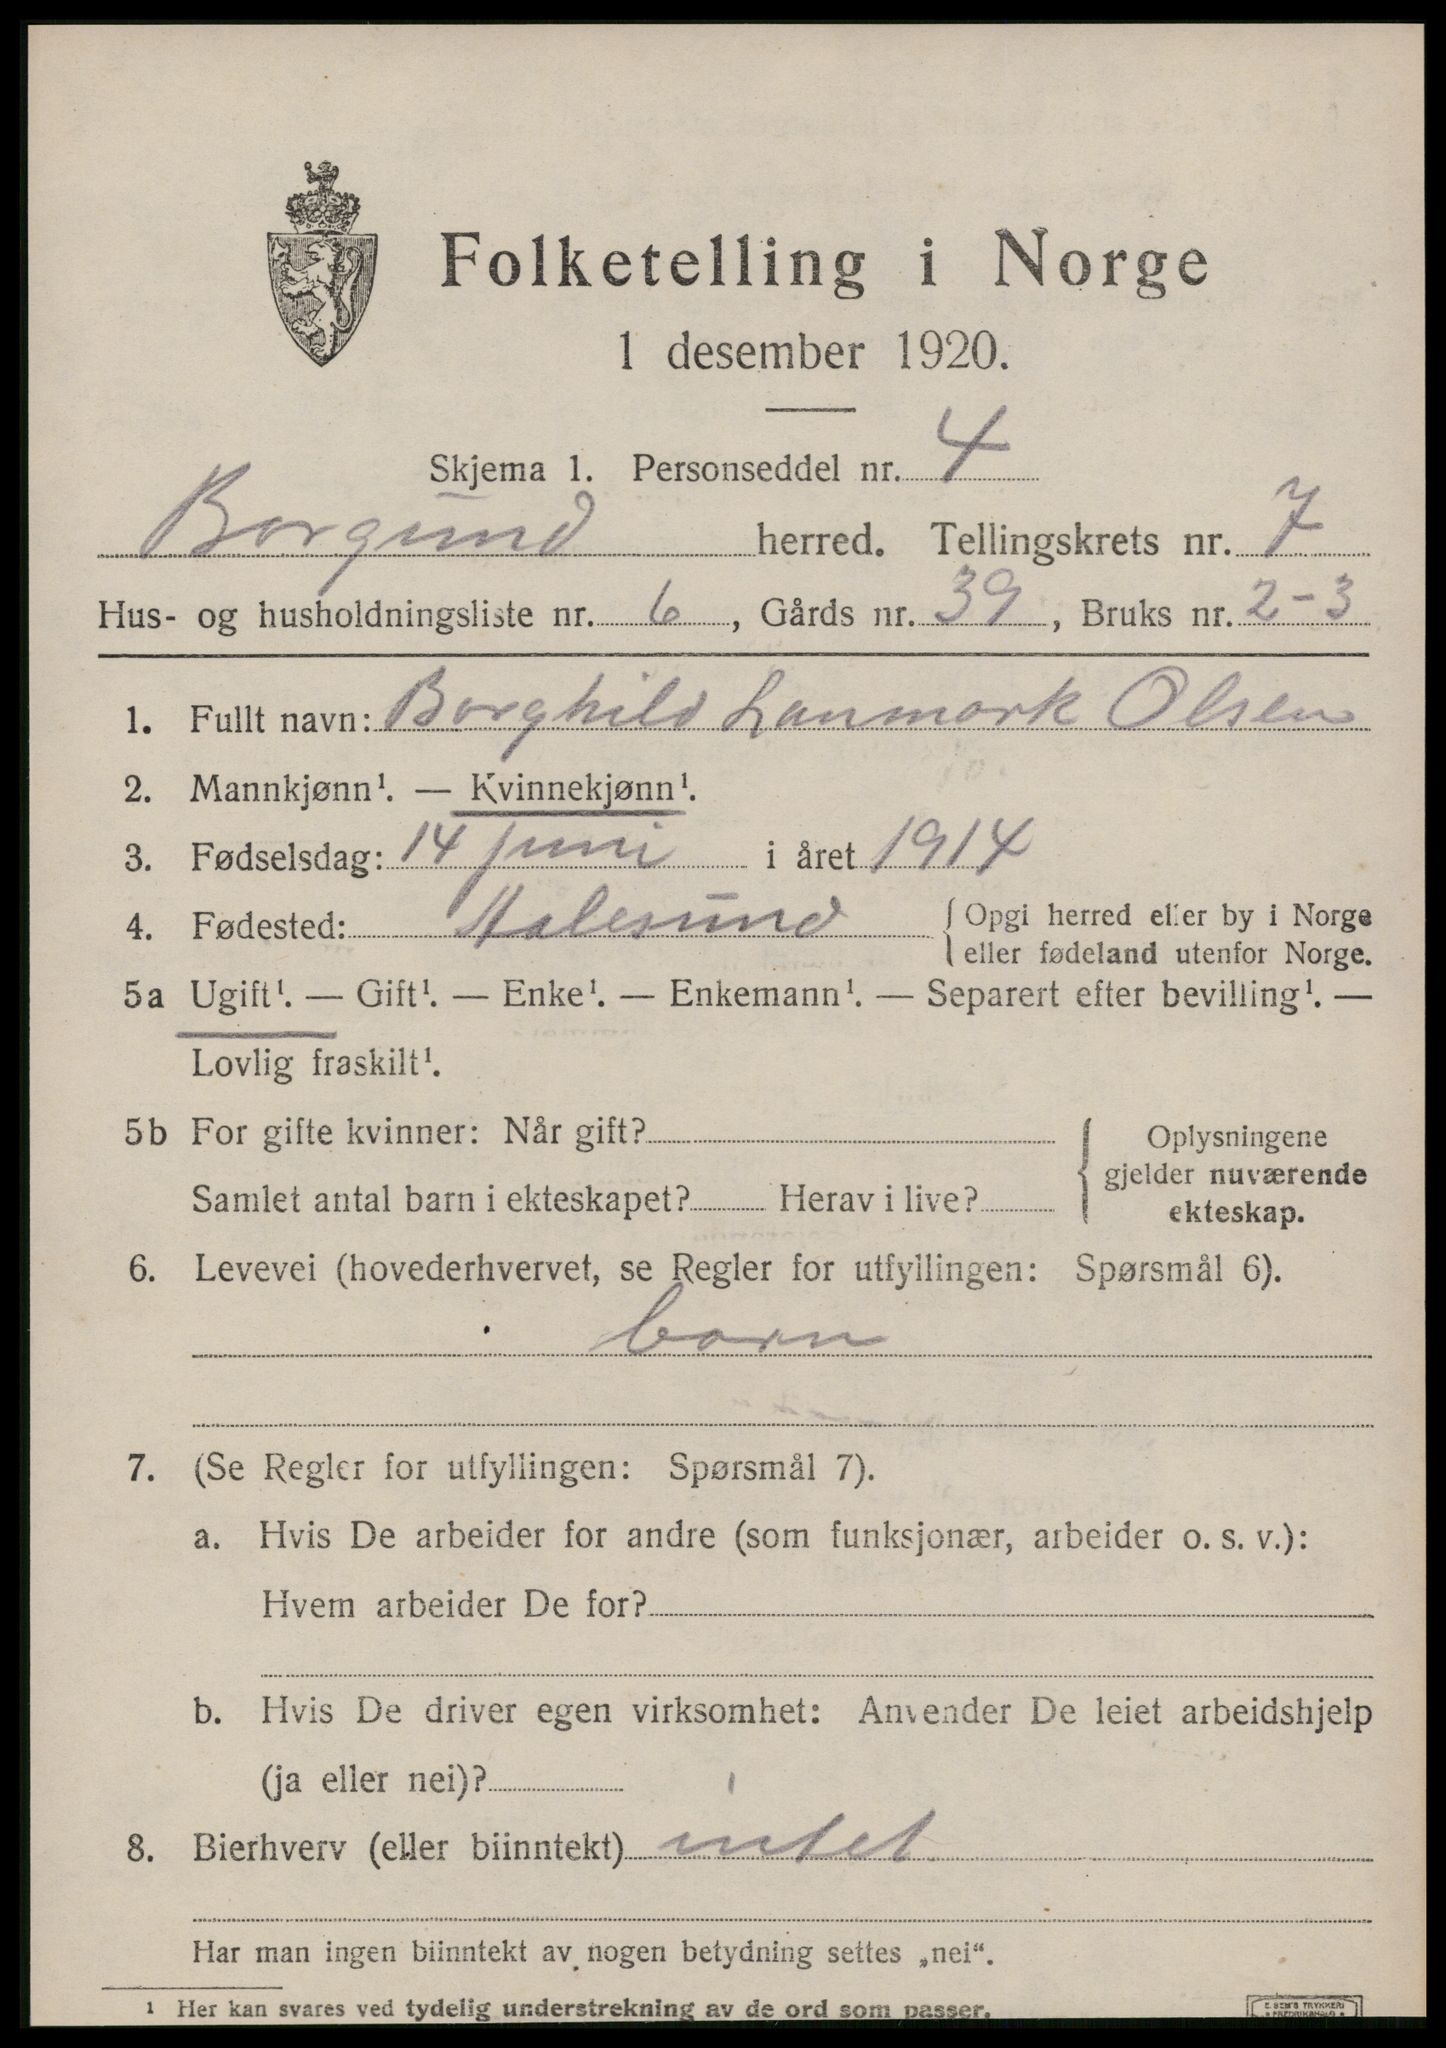 Folketelling i Norge
1 desember 1920.
Skjema 1. Personseddel nr. 4
Borgund herred. Tellingskrets nr. 7
Hus- og husholdningsliste nr. 6, Gårds nr. 39, Bruks nr. 2-3
1. Fullt navn: Borghild Lanmark Olsen
2. Mannkjønn¹. — Kvinnekjønn¹.
3. Fødselsdag: 14 juni i året 1914
4. Fødested: Aalesund { Opgi herred eller by i Norge
eller fødeland utenfor Norge.
5a Ugift¹. — Gift¹. — Enke¹. — Enkemann¹. — Separert efter bevilling¹. —
Lovlig fraskilt¹.
5b For gifte kvinner: Når gift? { Oplysningene
gjelder nuværende
Samlet antal barn i ekteskapet? Herav i live?
ekteskap.
6. Levevei (hovederhvervet, se Regler for utfyllingen: Spørsmål 6).
barn
7. (Se Regler for utfyllingen: Spørsmål 7).
a. Hvis De arbeider for andre (som funksjonær, arbeider o. s. v.):
Hvem arbeider De for?
b. Hvis De driver egen virksomhet: Anvender De leiet arbeidshjelp
(ja eller nei)?
8. Bierhverv (eller biinntekt) intet
Har man ingen biinntekt av nogen betydning settes „nei“.
¹ Her kan svares ved tydelig understrekning av de ord som passer.
E. SEM'S TRYKKERI
FREDRIKSHALD